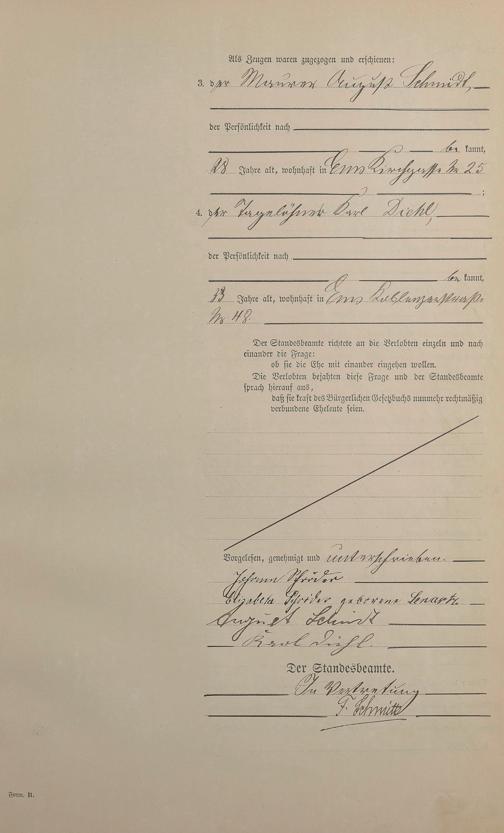 Als Zeugen waren zugezogen und erschienen:
3. der Maurer August Schmidt,
der Persönlichkeit nach
be kannt,
28 Jahre alt, wohnhaft in Ems Kirchgasse No 25
;
4. der Tagelöhner Karl Diehl,
der Persönlichkeit nach
be kannt,
Jahre alt, wohnhaft in Ems Koblenzerstraße
No 48
Der Standesbeamte richtete an die Verlobten einzeln und nach
einander die Frage:
ob sie die Ehe mit einander eingehen wollen.
Die Verlobten bejahten diese Frage und der Standesbeamte
sprach hierauf aus,
daß sie kraft des Bürgerlichen Gesetzbuchs nunmehr rechtmäßig
verbundene Eheleute seien.
Vorgelesen, genehmigt und unterschrieben.
Johann Schröder
Elisabeth Schröder geborene
August Schmidt
Karl Diehl.
Der Standesbeamte.
In Vertretung
F. Schmitt
Form. B.